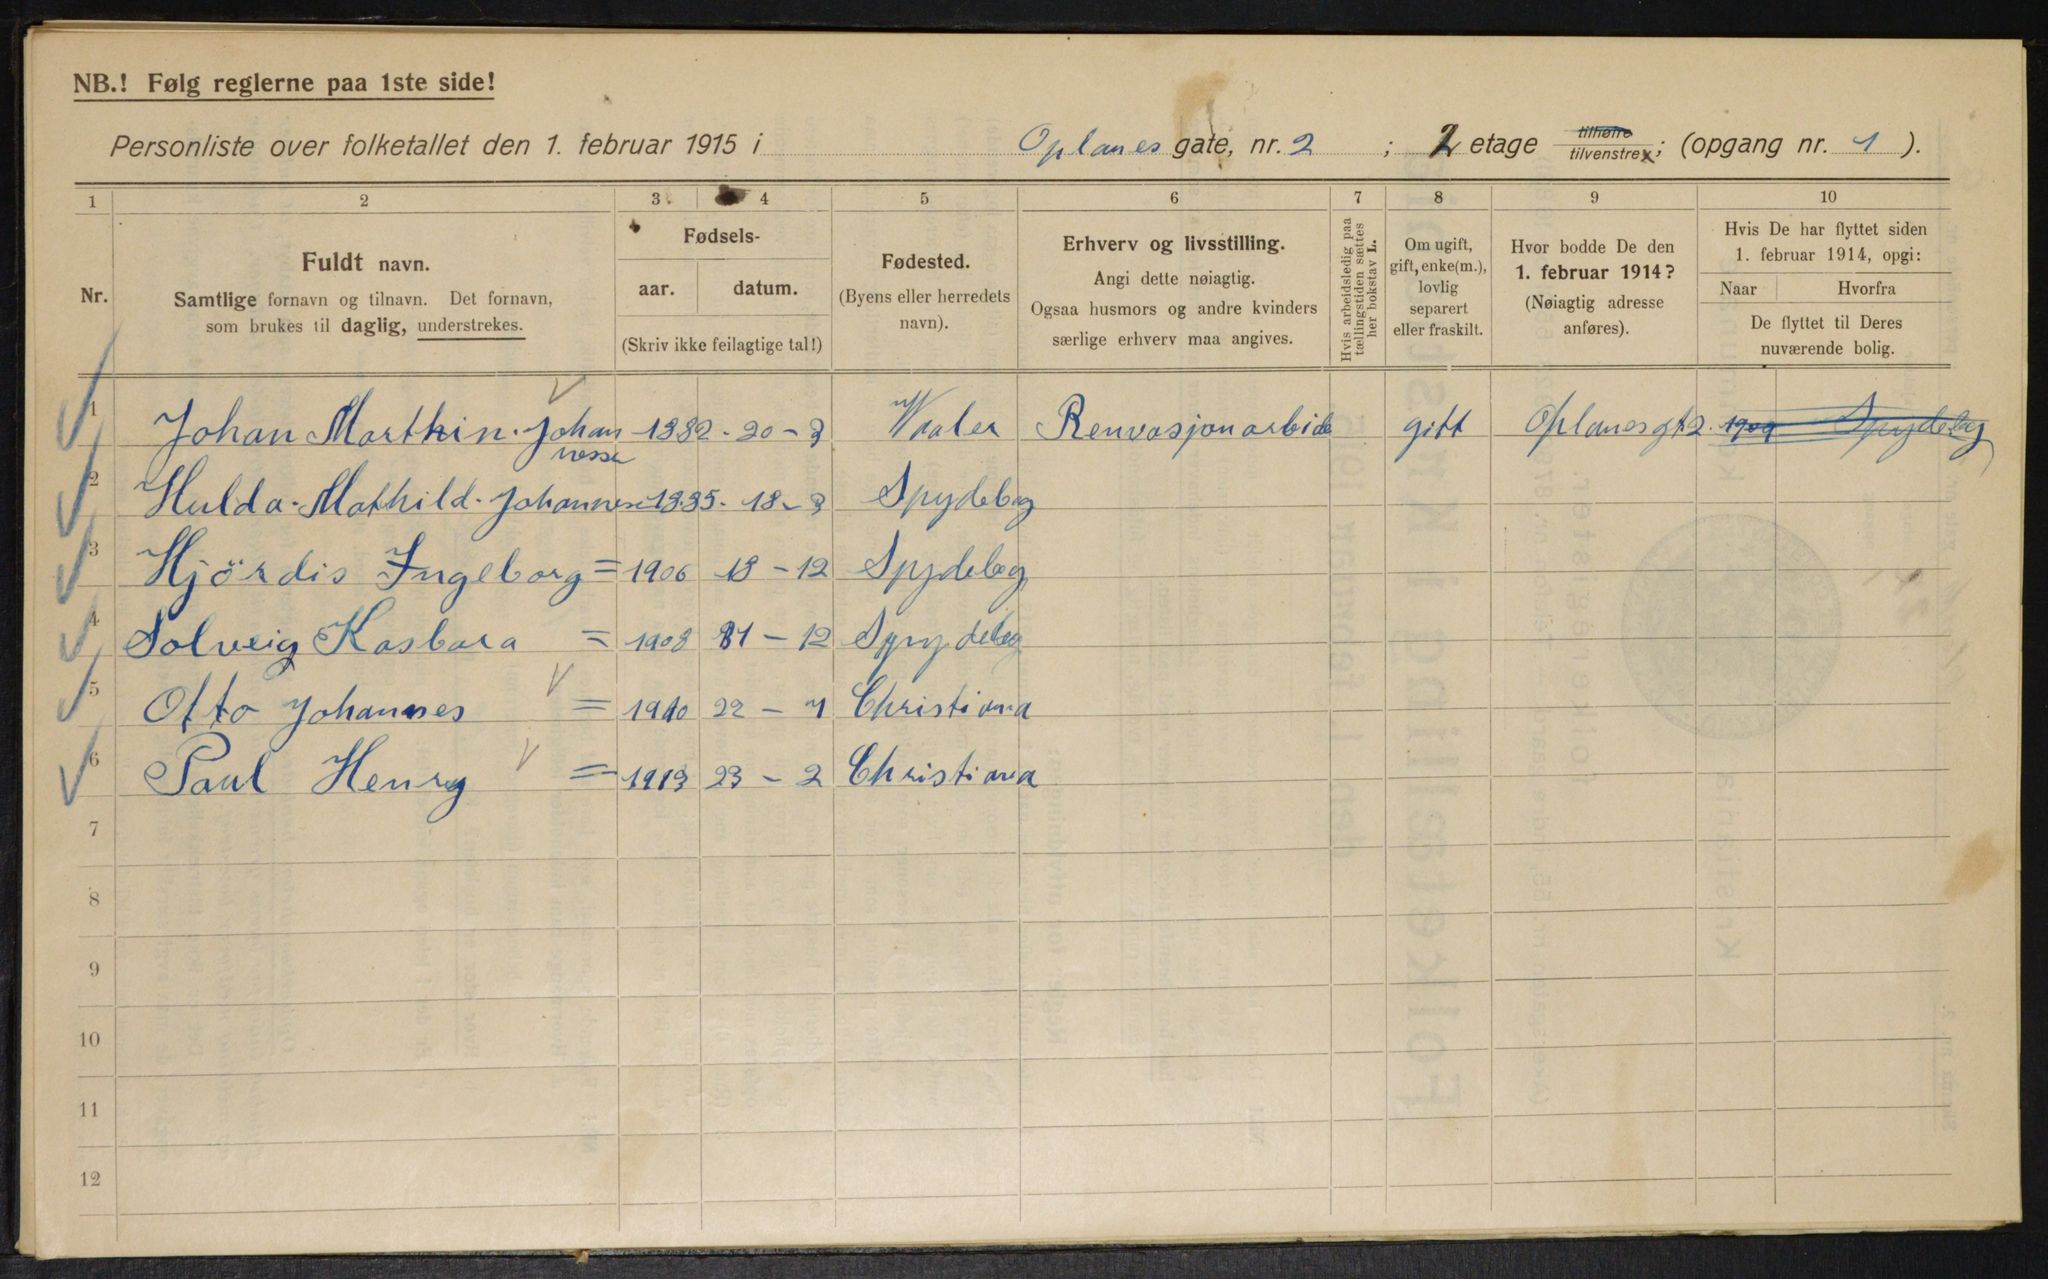 NB.! Følg reglerne paa 1ste side!
Personliste over folketallet den 1. februar 1915 i Oplanes gate, nr. 2 ; 2 etage tilhøire tilvenstre x; (opgang nr. 1 ).
1 2 3 4 5 6 7 8 9 10
Nr.
Fuldt navn.
Samtlige fornavn og tilnavn. Det fornavn,
som brukes til daglig, understrekes.
Fødsels-
aar. datum.
(Skriv ikke feilagtige tal!)
Fødested.
(Byens eller herredets
navn).
Erhverv og livsstilling.
Angi dette nøiagtig.
Ogsaa husmors og andre kvinders
særlige erhverv maa angives.
Hvis arbeidsledig paa
tællingstiden sættes
her bokstav L.
Om ugift,
gift, enke(m.),
lovlig
separert
eller fraskilt.
Hvor bodde De den
1. februar 1914?
(Nøiagtig adresse
anføres).
Hvis De har flyttet siden
1. februar 1914, opgi:
Naar Hvorfra
De flyttet til Deres
nuværende bolig.
1 Johan Marthin. Johannessen 1882 - 20 - 3 Vaaler Renvasjonarbide gitt Oplanesgt 2. 1909 Spydebeg
2 Hulda. Mathild. Johannesen 1885 - 18 - 3 Spydebeg
3 Hjördis Ingeborg = 1906 18 - 12 Spydebeg
4 Solveig Kasbara = 1908 31 - 12 Spydebeg
5 Otto Johannes = 1910 22 - 7 Christiana
6 Paul Henry = 1913 23 - 2 Christiana
7
8
9
10
11
12